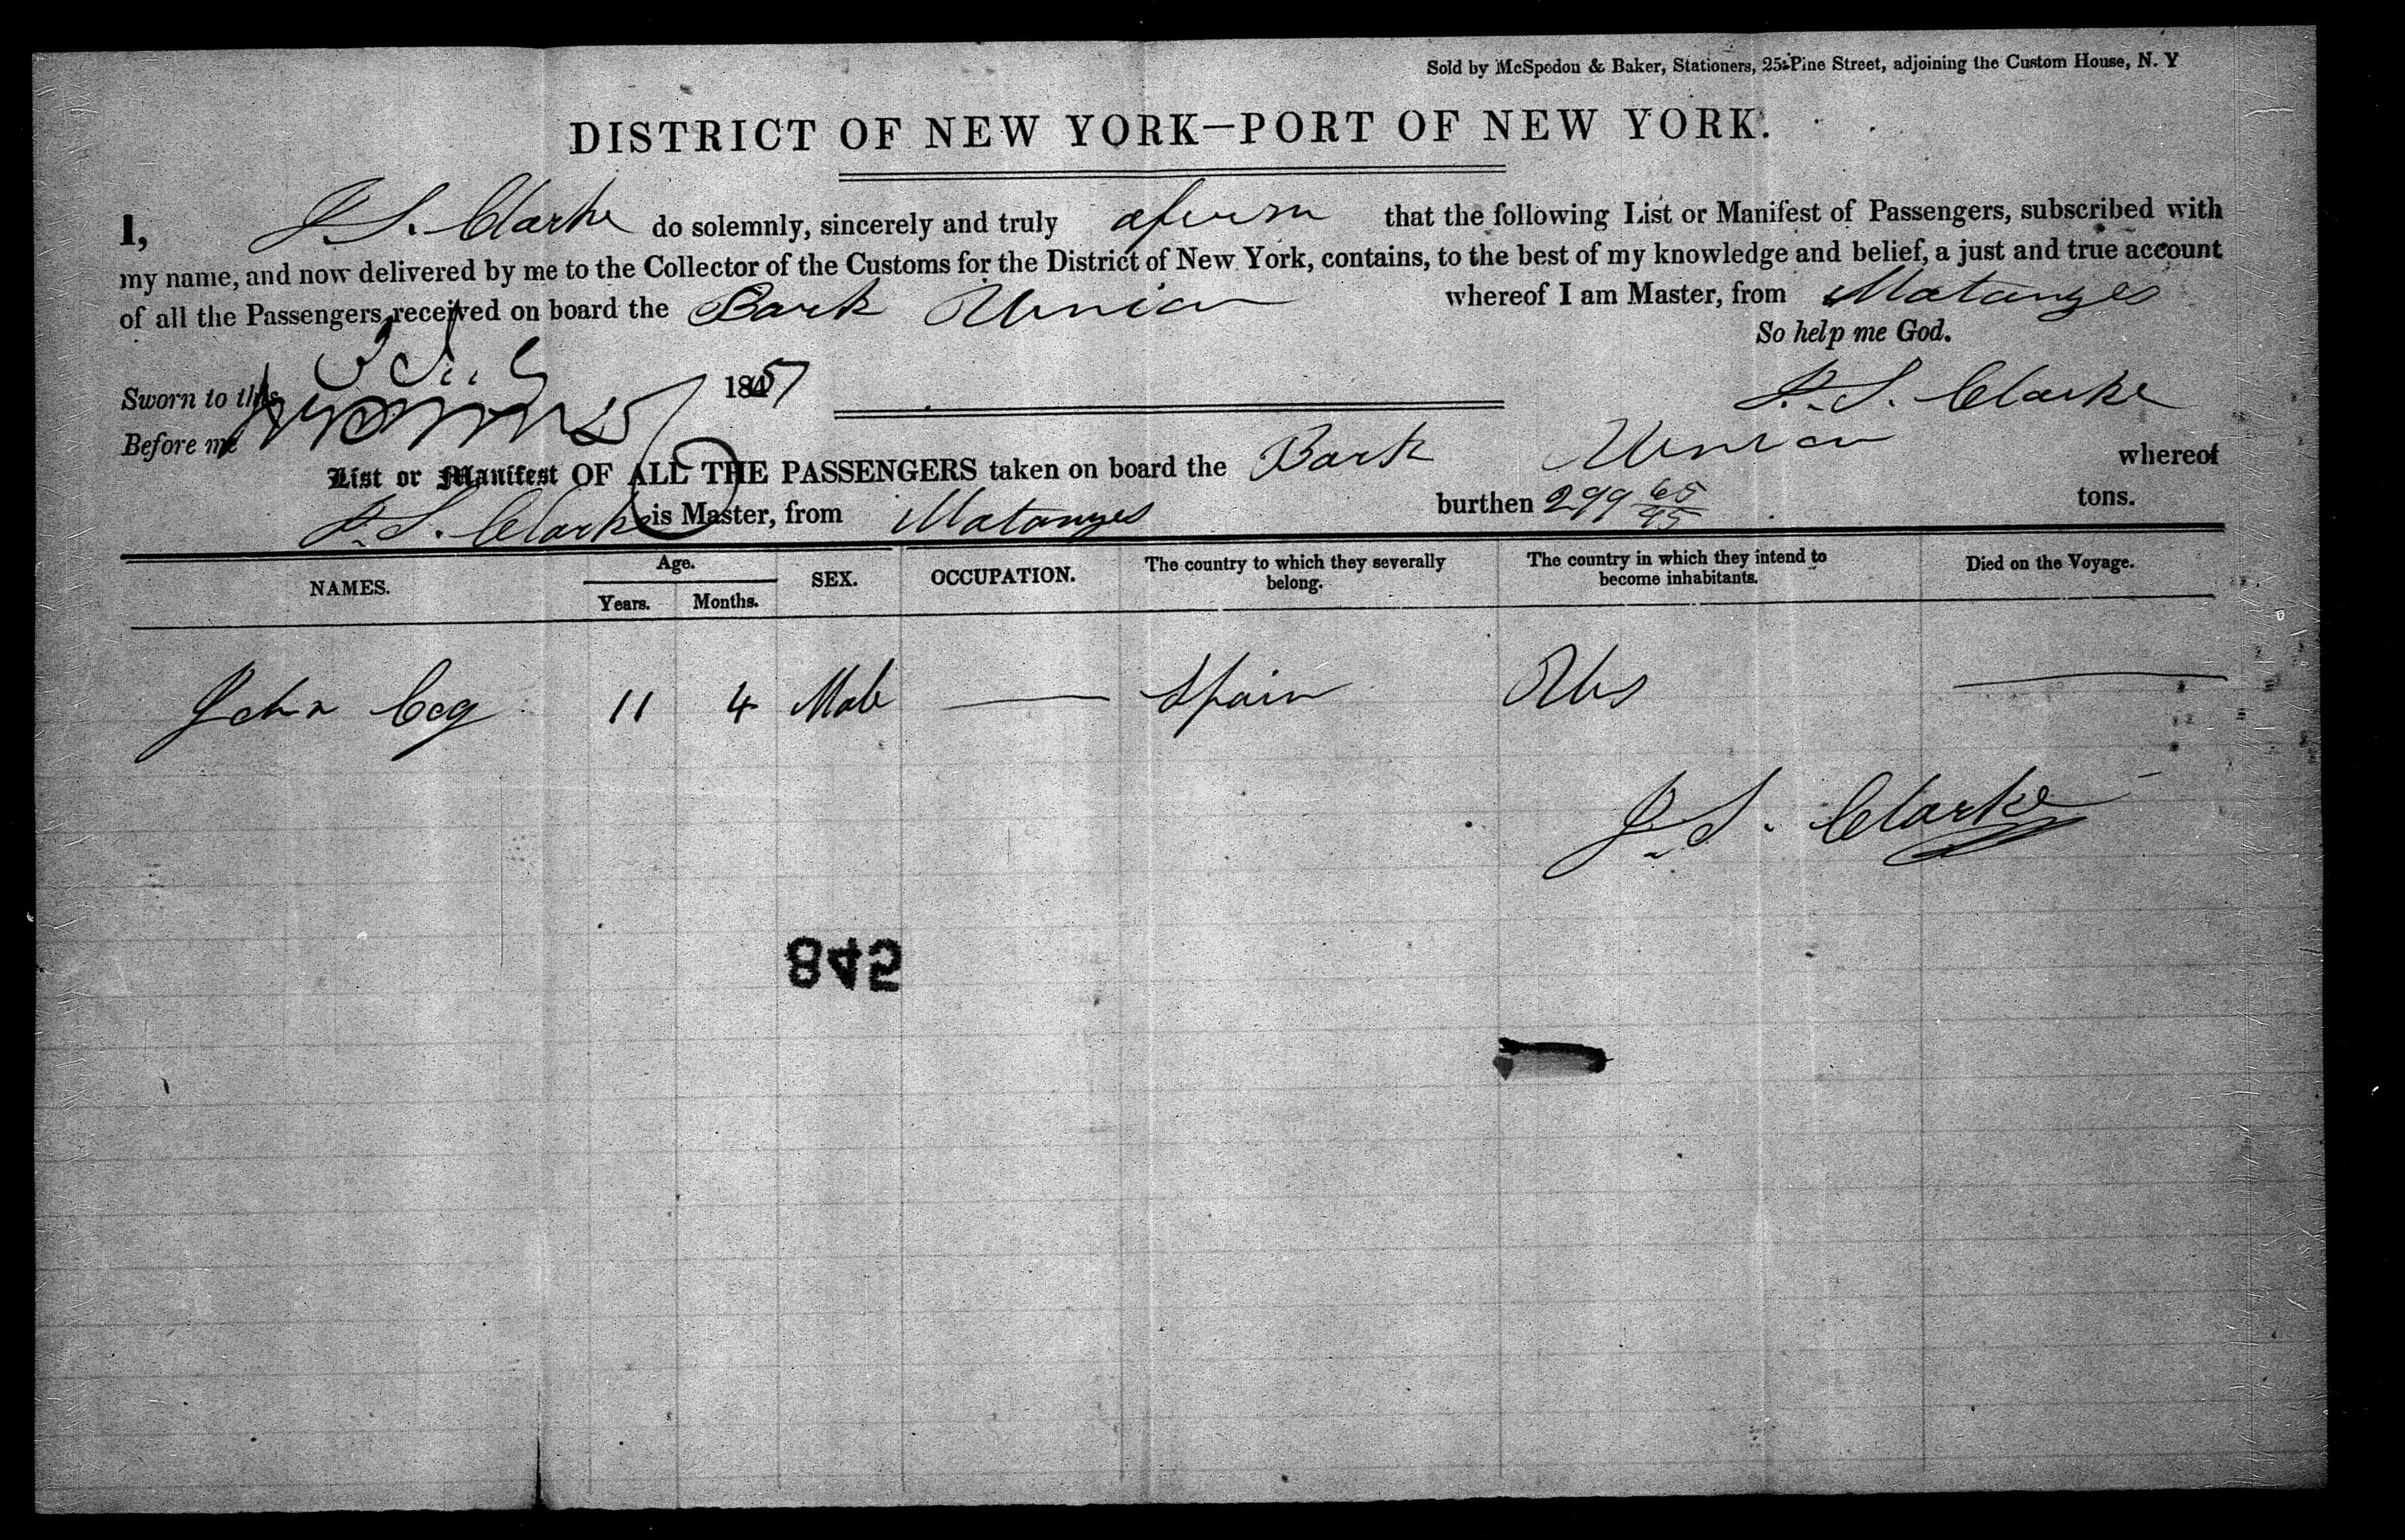 Sold by McSpedon & Baker, Stationers, 25 Pine Street, adjoining the Custom House, N. Y
DISTRICT OF NEW YORK—PORT OF NEW YORK.
I, J. S. Clarke do solemnly, sincerely and truly afirm that the following List or Manifest of Passengers, subscribed with
my name, and now delivered by me to the Collector of the Customs for the District of New York, contains, to the best of my knowledge and belief, a just and true account
of all the Passengers received on board the Bark Union whereof I am Master, from Matanzes
So help me God.
Sworn to this 3 July 1847
J. S. Clarke
Before me
List or Manifest OF ALL THE PASSENGERS taken on board the Bark Union whereof
J. S. Clarke is Master, from Matanzes burthen 299 65/95 tons.
NAMES. Age. Years. Months. SEX. OCCUPATION. The country to which they severally belong. The country in which they intend to become inhabitants. Died on the Voyage.
John 11 4 Male — Spain U S —
J. S. Clarke
845